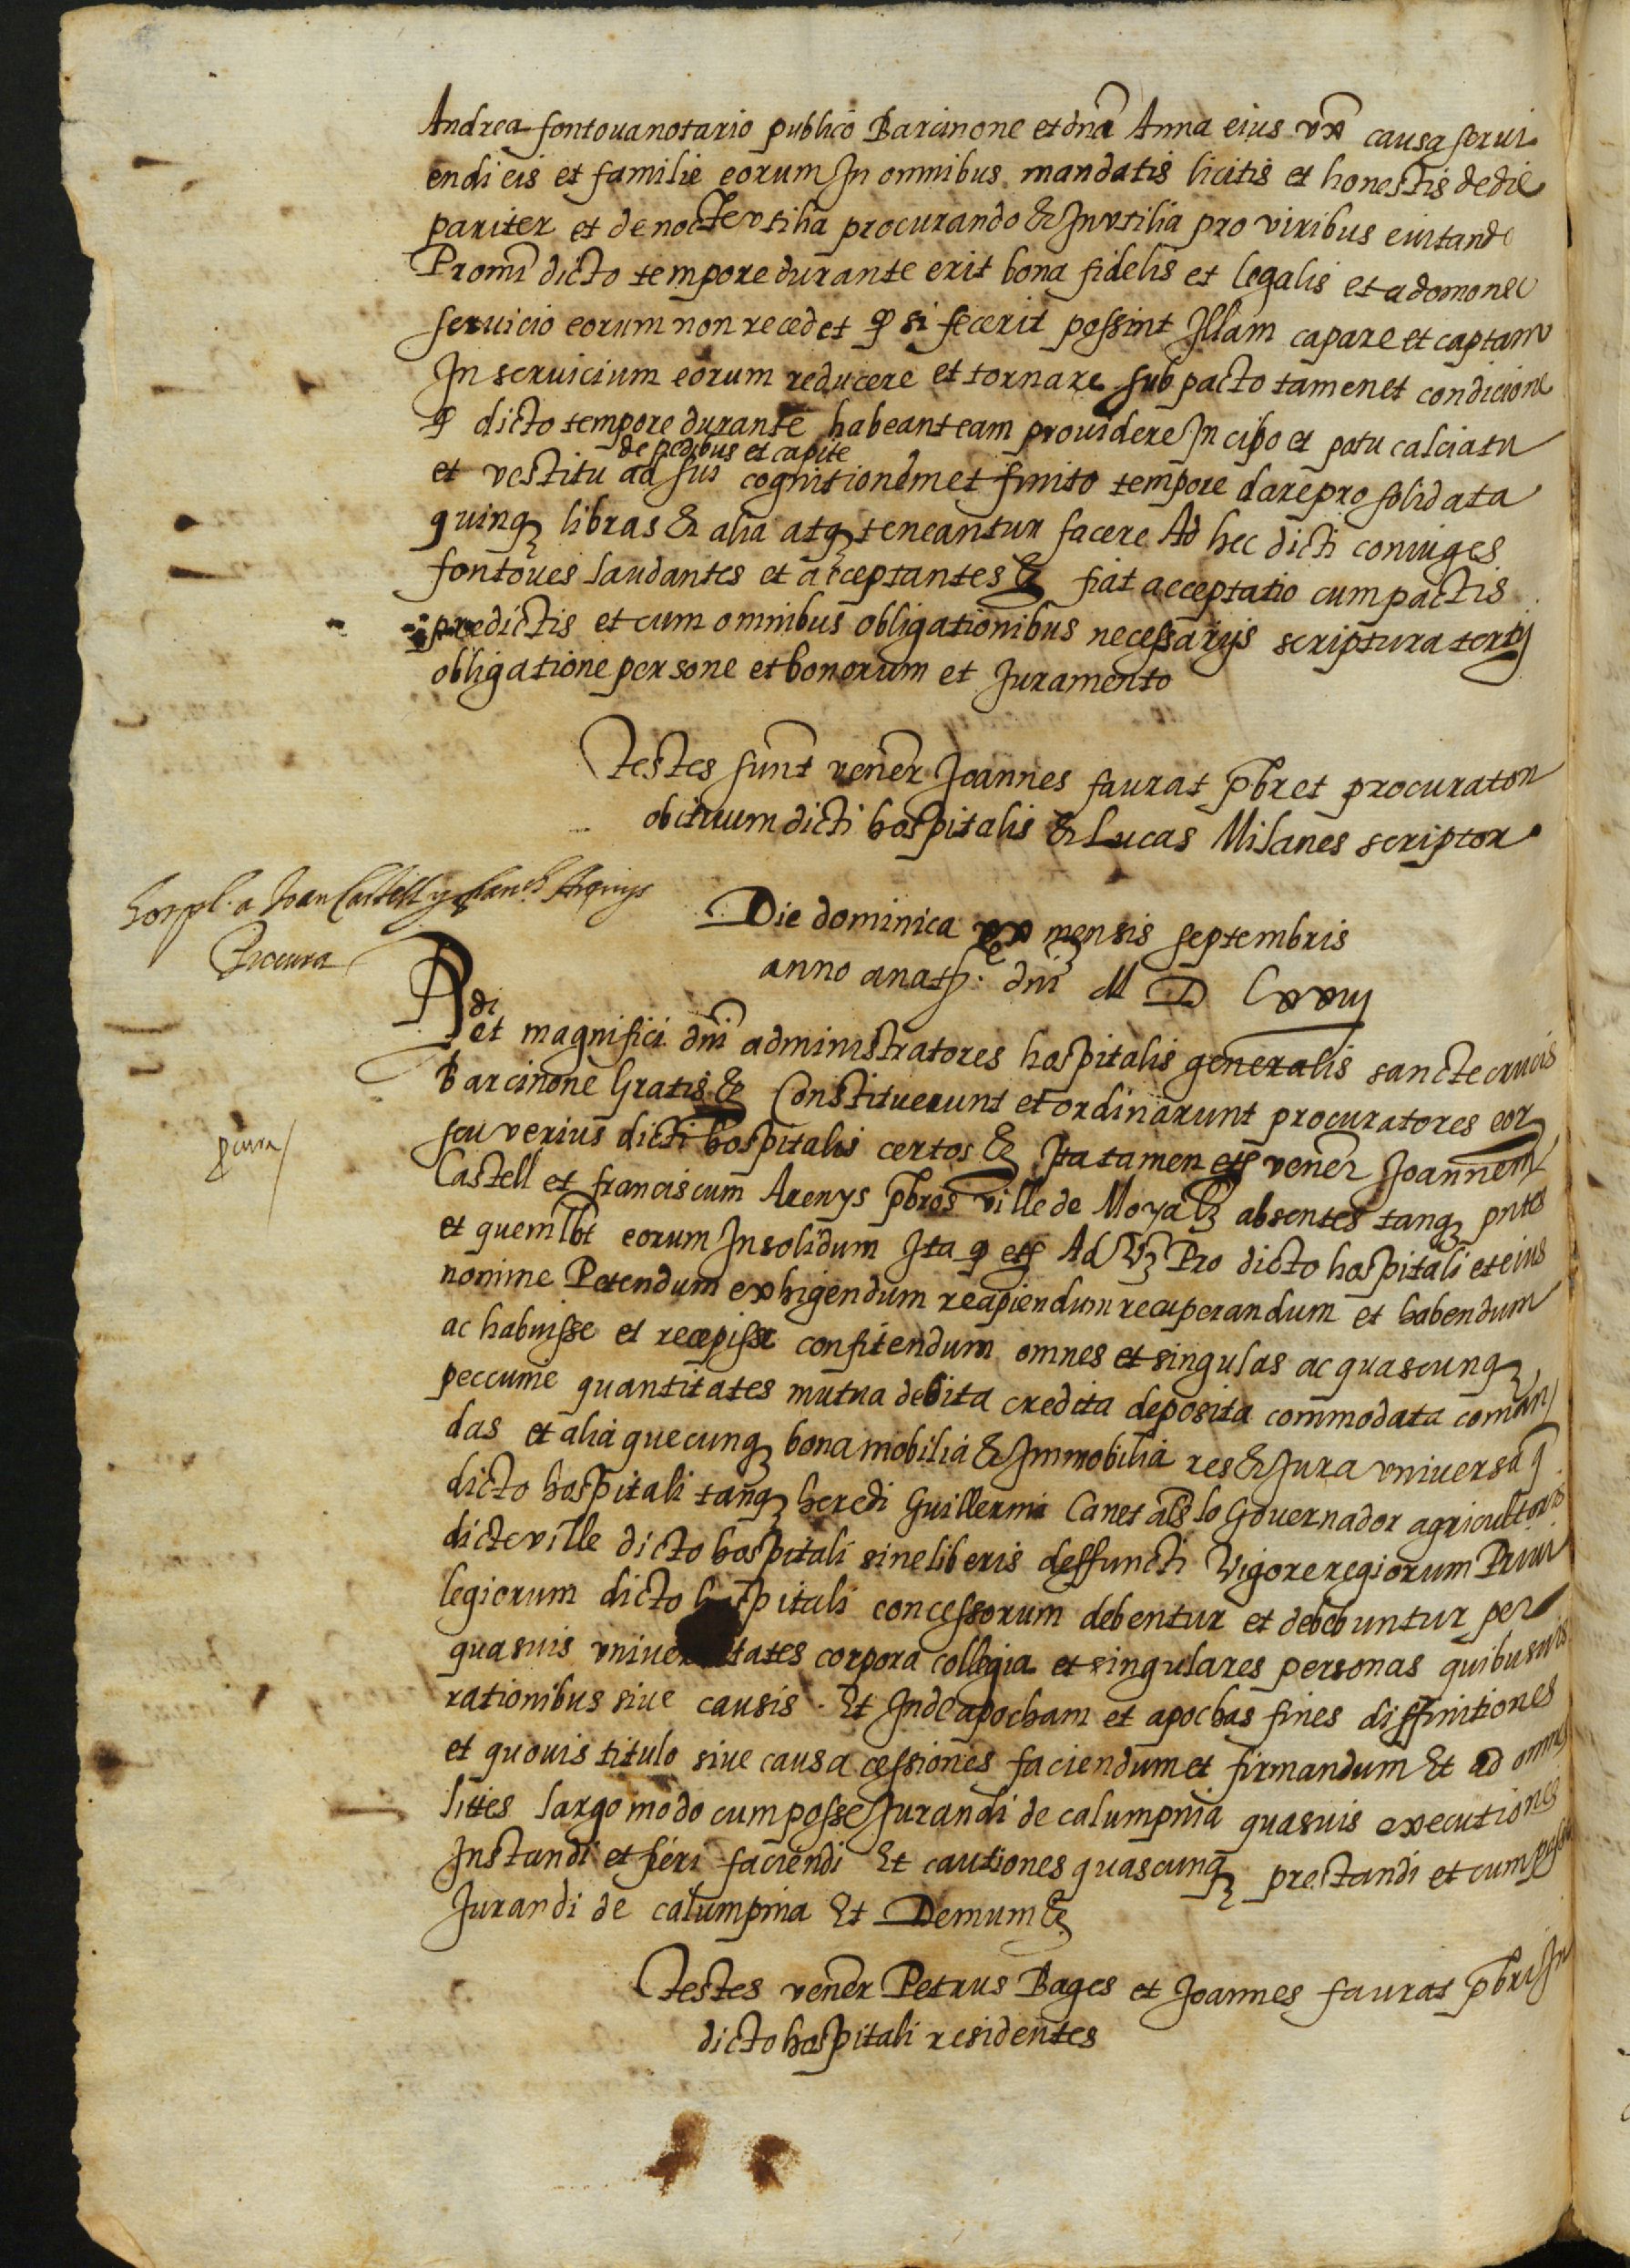 Andrea fontoua notario publico Barcinone et dna Anna eius vx causa serui
endi eis et familie eorum In omnibus mandatis licitis et honestis de die
pariter et de nocte vtilia procurando & Invtilia pro viribus euitando
Promi dicto tempore durante erit bona fidelis et legalis et a domo nec
seruicio eorum non recedet q si fecerit possint Illam capare et captam
In seruicium eorum reducere et tornare sub pacto tamen et condicione
q dicto tempore durante habeant eam prouidere In cibo et potu calciatu
de pedibus et capite
et vestitu ad sui cognitionem et finito tempore dare pro solidata
quinq libras & alia atq teneantur facere Ad hec dicti coniuges
fontoues laudantes et acceptantes & fiat acceptatio cum pactis
predictis et cum omnibus obligationibus necessarijs scriptura tertij
obligatione persone et bonorum et Juramento
Testes sunt vener Joannes faurat pbr et procurator
obituum dicti hospitalis & Lucas Milanes scriptor
hospl. a Joan Castell y franch Arenys
Procura
Die dominica xx mensis septembris
anno a nat. dni M D Lxxiij
Rdi
et magnifici dni administratores hospitalis generalis sancte crucis
Barcinone Gratis & Constituerunt et ordinarunt procuratores eor
pcura
seu verius dicti hospitalis certos & Ita tamen vener Joannem
Castell et franciscum Arenys pbros ville de Moya absentes tanq pntes
et quemlbt eorum Insolidum Ita q Ad Pro dicto hospitali et eius
nomine Petendum exhigendum recipiendum recuperandum et habendum
ac habuisse et recepisse confitendum omnes et singulas ac quascunq
peccunie quantitates mutua debita credita deposita commodata coman
das et alia quecunq bona mobilia & Immobilia res & Jura vniuersa q
dicto hospitali tanq heredi Guillermi Canet als lo Gouernador agricultoris
dicte ville dicto hospitali sine liberis deffuncti Vigore regiorum Priui
legiorum dicto hospitali concessorum debentur et debebuntur per
quasuis vniuersitates corpora collegia et singulares personas quibusuis
rationibus siue causis. Et Inde apocham et apochas fines diffinitiones
et quouis titulo siue causa cessiones faciendum et firmandum Et ad omnes
lites largo modo cum posse Jurandi de calumpnia quasuis executiones
Instandi et fieri faciendi Et cautiones quascunq prestandi et cum posse
Jurandi de calumpnia Et Demum &
Testes vener Petrus Bages et Joannes faurat pbri In
dicto hospitali residentes